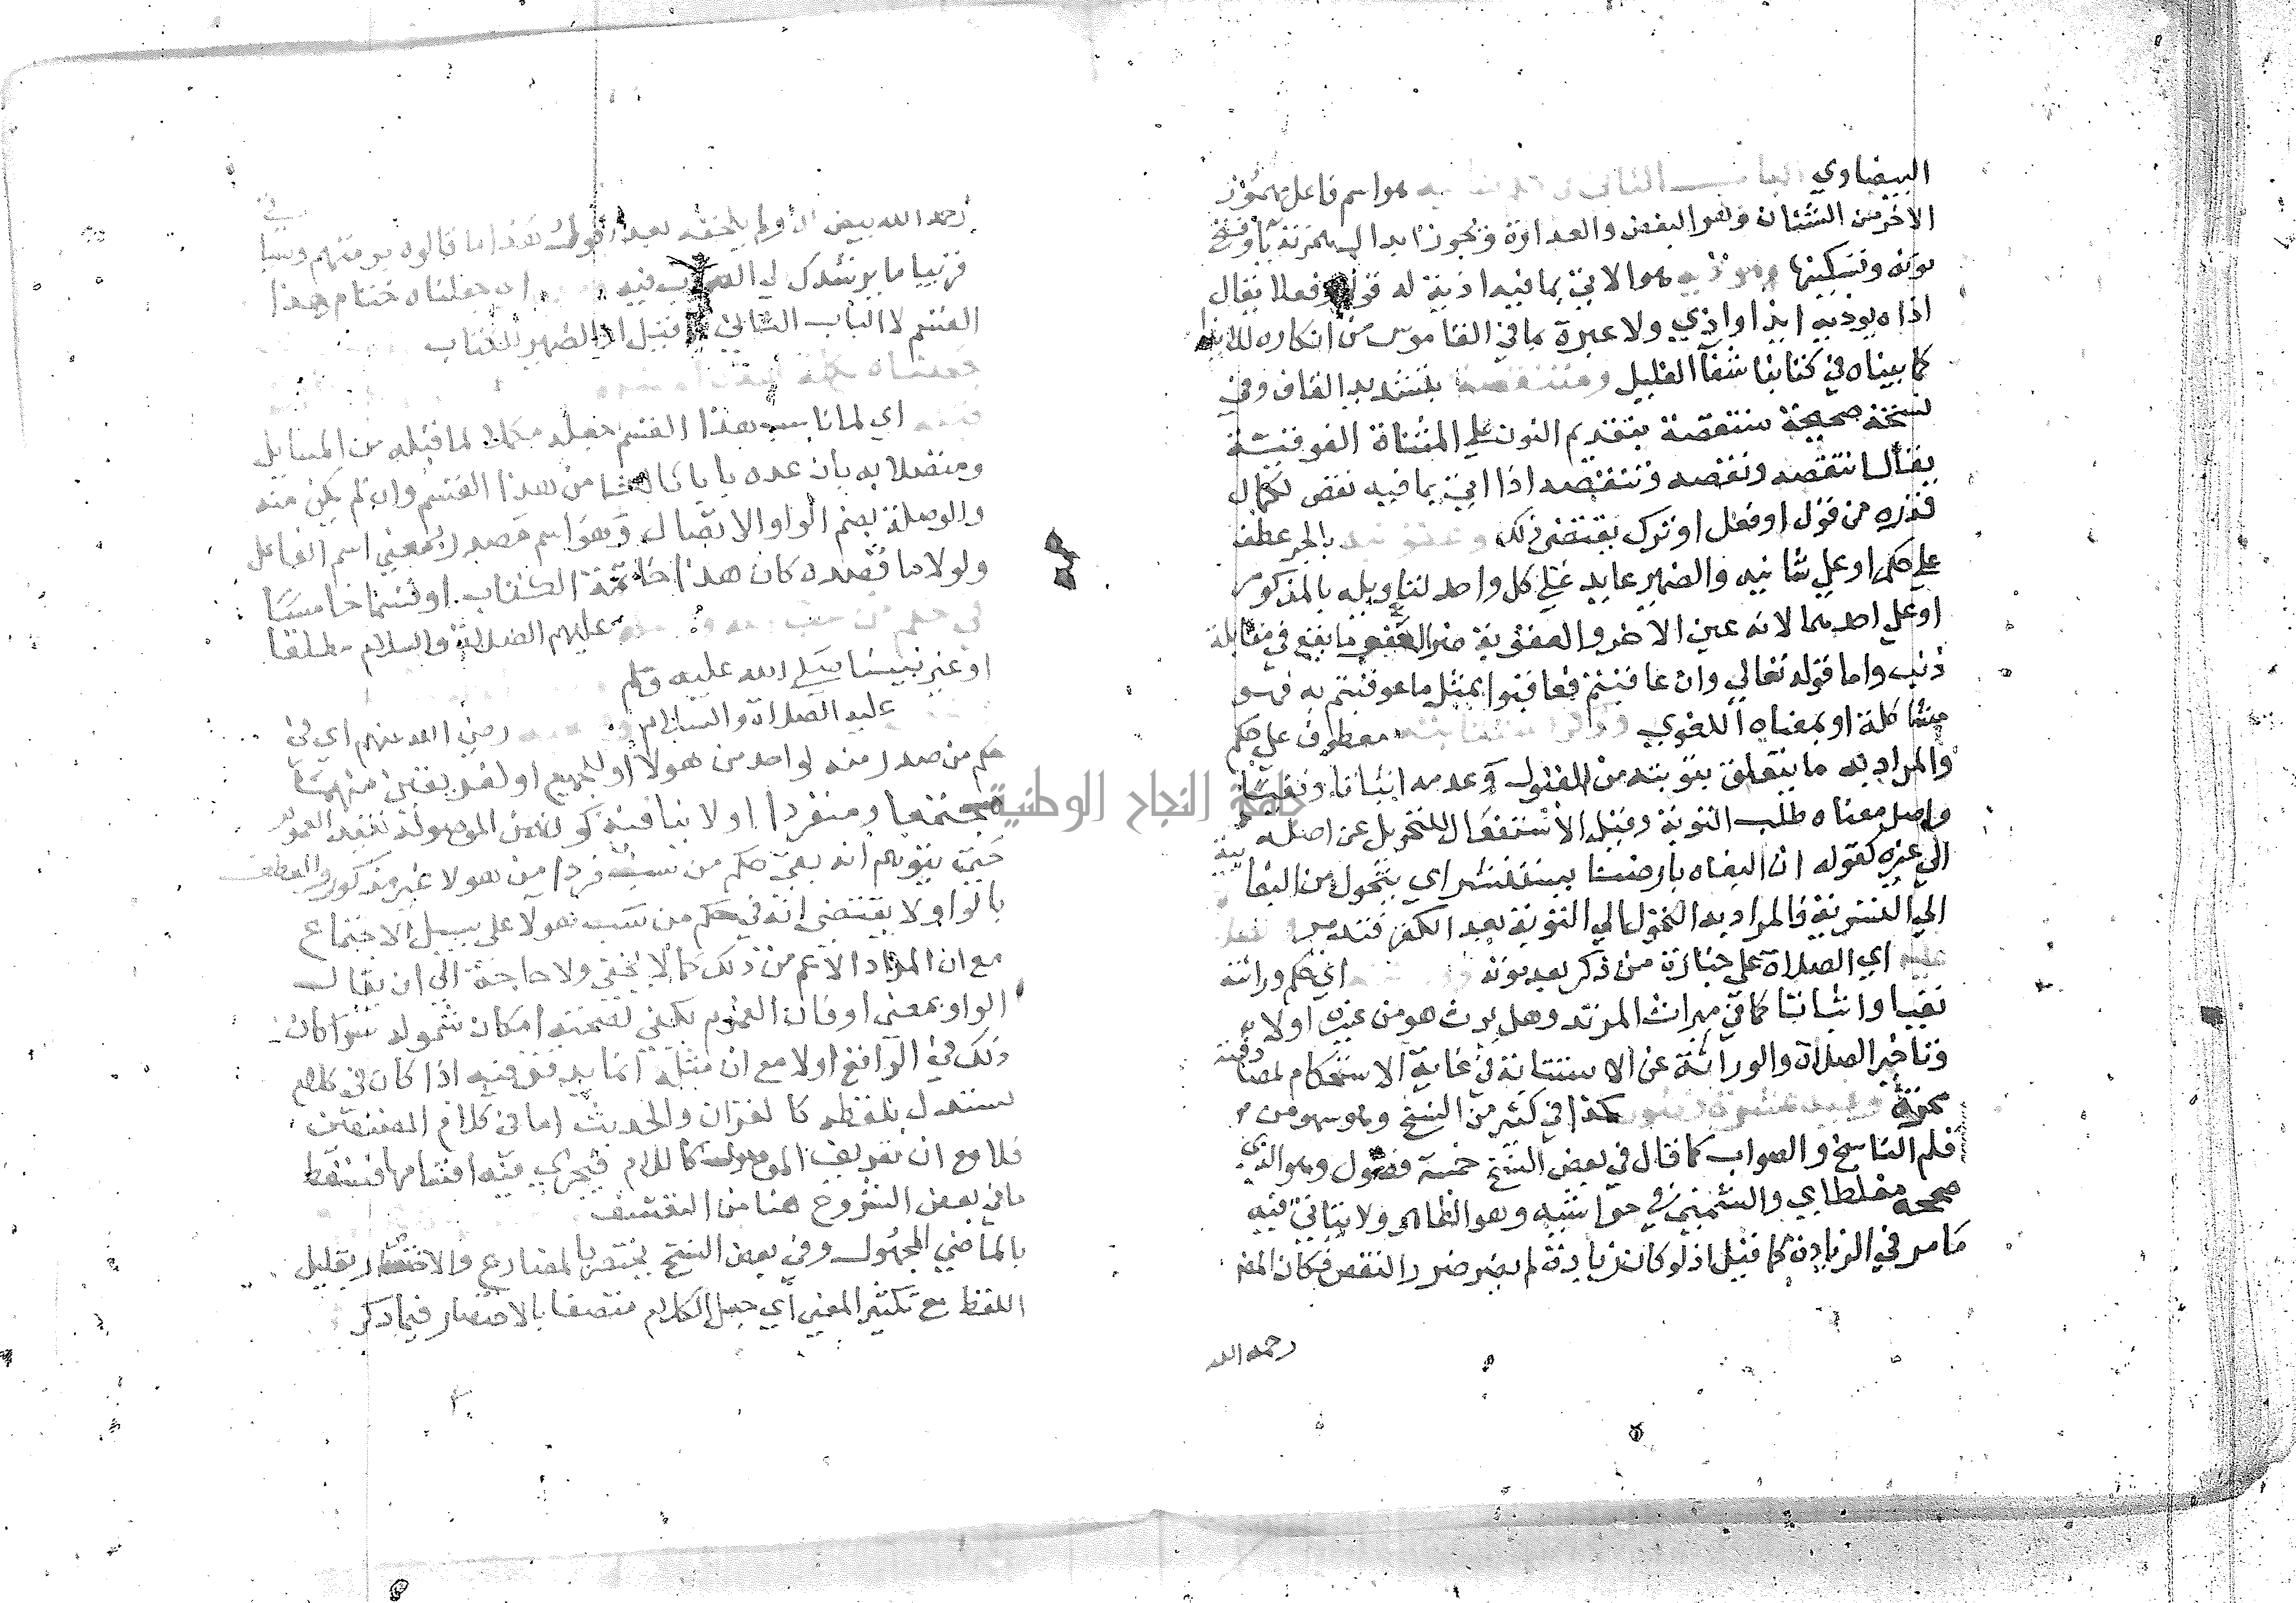 البيضاوي الباب الثاني في حكم شانيه هو اسم فاعل مهموز
الاخر من الشنئان وهو البغض والعداوة ويجوز ابدال همزته ياء وفتح
نونه وتسكينها وموذيه هو الاتي بما فيه اذية له قولا وفعلا يقال
اذاه يوذيه ايذا واذي ولا عبرة بما في القاموس من انكاره للايذا
كما بيناه في كتابنا شفآ الغليل ومنتقصه بتشديد القاف وفي
نسخة صحيحة منتقصة بتقديم النون علي المثناة الفوقية
يقال انتقصه ونقصه وتنقصه اذا اتي بما فيه نقص لكمال
قدره من قول او فعل او ترك يقتضي ذلك وعقوبته بالجر عطف
علي حكم او علي شانيه والضمير عايد علي كل واحد لتاويله بالمذكور
او علي احدهما لانه عين الاخر والعقوبة ضرر العفو ما يقع في مقابلة
ذنب واما قوله تعالي وان عاقبتم فعاقبوا بمثل ما عوقبتم به فهو
مشاكلة او بمعناه اللغوي وذكر استتابته معطوف علي حكم
والمراد به ما يتعلق بتوبته من القبول وعدمه اثباتا ونفيا
واصل معناه طلب التوبة وقيل الاستفعال للتحويل عن اصله
الي غيره كقوله ان البغاه بارضنا يستنسر اي يتحول من البغا
الي النسرية فالمراد به التحول الي التوبة بعد الكفر فتدبر
عليه اي الصلاة علي جنازة من ذكر بعد موته اي حكم وراثته
نفيا واثباتا كما في ميراث المرتد وهل يرث هو من غيره اولا
وتاخير الصلاة والوراثة عن الاستتابة في غاية الاستحكام لمصادفته
محزة وفيه عشرة فصول هكذا في كثير من النسخ وهو سهو من
قلم الناسخ والصواب كما قال في بعض النسخ خمسة فصول وهو الذي
صححه مغلطاي والشمني في حواشيه وهو الظاهر ولا يتاتي فيه
ما مر في الزيادة كما قيل اذ لو كان زيادة لم يضر ضرر النقص فكان المص
رحمه الله
رحمه الله بيض له ولم يلحقه بعد اقول هذا ما قالوه برمتهم وسيا
في
قريبا ما يرشدك الي الصواب فيه جعلناه ختام هذا
القسم لا الباب الثاني وقيل ان الضمير للكتاب
اي لما ناسب هذا القسم جعله مكملا لما قبله من المسايل
ومتصلا به بان عده بابا ثالثا من هذا القسم وان لم يكن منه
والوصلة بضم الواو الاتصال وهو اسم مصدر بمعني اسم الفاعل
ولولا ما قصده كان هذا خاتمة الكتاب او قسما خامسا
في حكم من سب عليهم الصلاة والسلام مطلقا
او غير نبينا صلي الله عليه وسلم
عليه الصلاة والسلام رضي الله عنهم اي في
حكم من صدر منه لواحد من هولا او للجميع او لفريقين منهما
مجتمعا ومنفردا اولا ينافيه كون من الموصولة تفيد العموم
حتي يتوهم انه بقي حكم من سب فردا من هولا غير مذكور والعطف
بالواو لا يقتضي انه في حكم من سب هولا علي سبيل الاجتماع
مع ان المراد الاعم من ذلك كما لا يخفي ولا حاجة الي ان يقال
الواو بمعني او فان العموم يكفي لصحته امكان شموله سوا كان
ذلك في الواقع اولا مع ان مثله انما يدقق فيه اذا كان في كلام
يستدل بلفظه كالقران والحديث اما في كلام المصنفين
فلا مع ان تعريف الموصول كاللام فيجري فيه اقسامها فسقط
ما في بعض الشروح هنا من التعسف
بالماضي المجهول وفي بعض النسخ يختصر بالمضارع والاختصار تقليل
اللفظ مع تكثير المعني اي جعل الكلام متصفا بالاختصار فيما ذكر
جامعة النجاح الوطنية